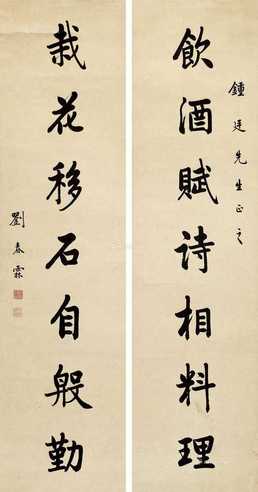 鍾廷先生正之
飲酒賦诗相料理
栽花移石自殷勤
劉春霖